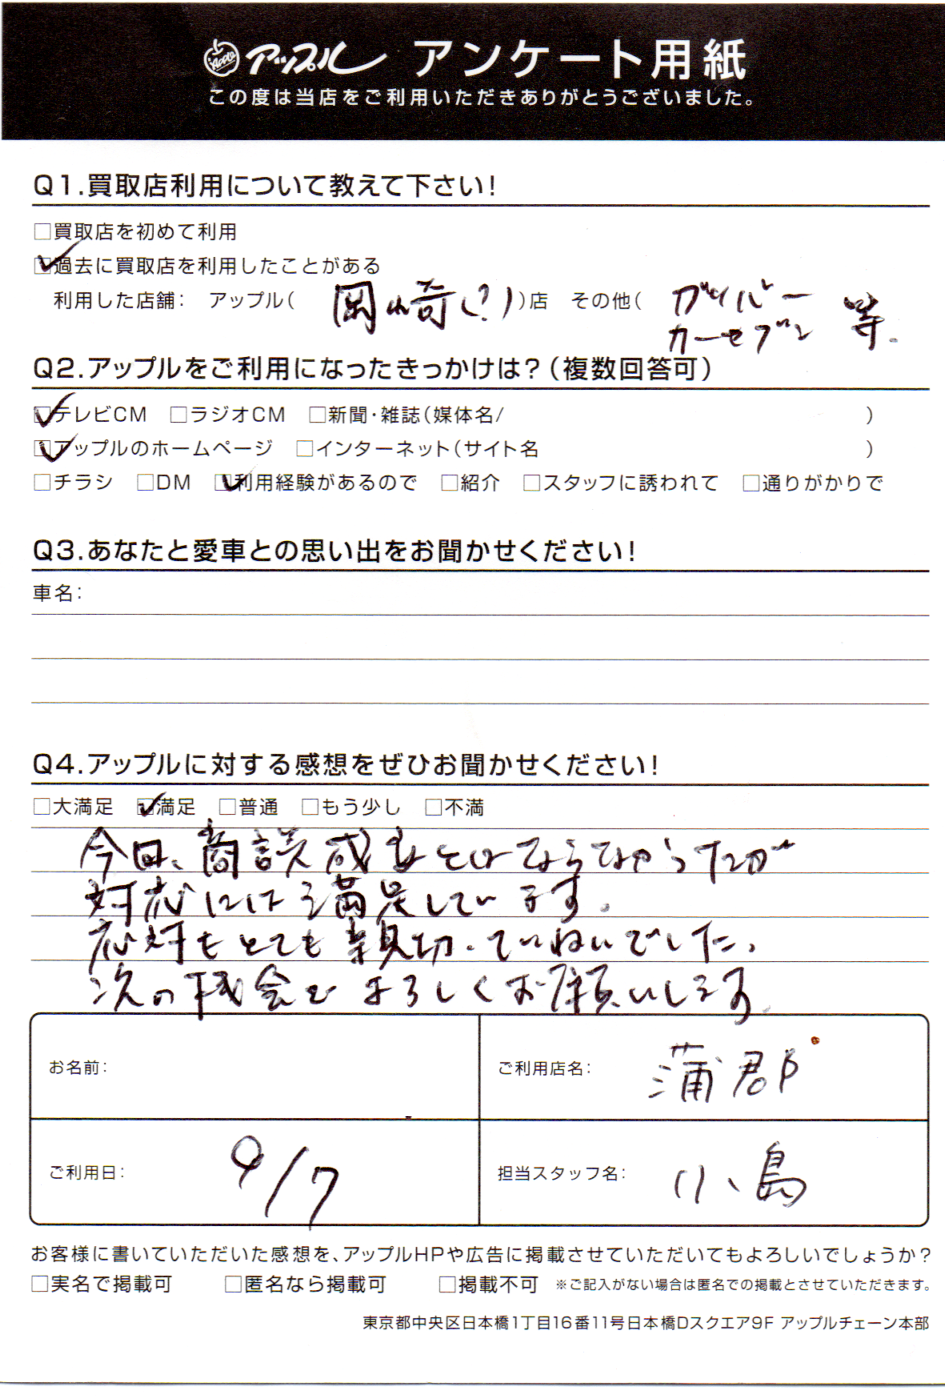 Apple アップル アンケート用紙
この度は当店をご利用いただきありがとうございました。
Q1.買取店利用について教えて下さい!
□買取店を初めて利用
☑過去に買取店を利用したことがある
利用した店舗: アップル( 岡崎(?) )店 その他( ガリバー
カーセブン 等.
Q2.アップルをご利用になったきっかけは?(複数回答可)
☑テレビCM □ラジオCM □新聞・雑誌(媒体名/ )
☑アップルのホームページ □インターネット(サイト名 )
□チラシ □DM ☑利用経験があるので □紹介 □スタッフに誘われて □通りがかりで
Q3.あなたと愛車との思い出をお聞かせください!
車名:
Q4.アップルに対する感想をぜひお聞かせください!
□大満足 ☑満足 □普通 □もう少し □不満
今回、商談成立とはならなかったが
対応には満足しています。
応対もとても親切・ていねいでした。
次の機会もよろしくお願いします。
お名前: ご利用店名: 蒲郡
ご利用日: 9/7 担当スタッフ名: 小島
お客様に書いていただいた感想を、アップルHPや広告に掲載させていただいてもよろしいでしょうか?
□実名で掲載可 □匿名なら掲載可 □掲載不可 ※ご記入がない場合は匿名での掲載とさせていただきます。
東京都中央区日本橋1丁目16番11号日本橋Dスクエア9F アップルチェーン本部